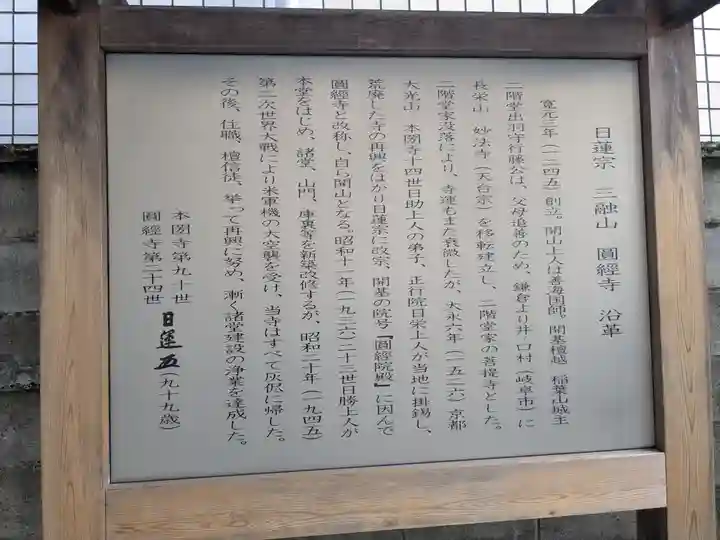 日蓮宗　三融山　圓經寺　沿革
寛元三年（一二四五）創立。開山上人は善海国師。開基檀越　稲葉山城主
二階堂出羽守行藤公は、父母追善のため、鎌倉より井ノ口村（岐阜市）に
長栄山　妙法寺（天台宗）を移転建立し、二階堂家の菩提寺とした。
二階堂家没落により、寺運もまた衰微したが、大永六年（一五二六）京都
大光山　本圀寺十四世日助上人の弟子、正行院日栄上人が当地に掛錫し、
荒廃した寺の再興をはかり日蓮宗に改宗、開基の院号『圓經院殿』に因んで
圓經寺と改称し、自ら開山となる。昭和十一年（一九三六）二十三世日勝上人が
本堂をはじめ、諸堂、山門、庫裏等を新築改修するが、昭和二十年（一九四五）
第二次世界大戦により米軍機の大空襲を受け、当寺はすべて灰燼に帰した。
その後、住職、檀信徒、挙って再興に努め、漸く諸堂建設の浄業を達成した。
本圀寺第九十世
圓經寺第二十四世
（九十九歳）